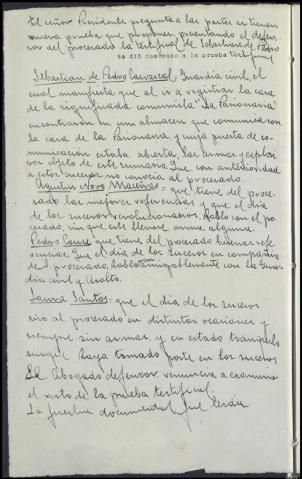 El señor Presidente pregunta a las partes si tienen
nueva prueba que proponer, presentando el defen-
sor del procesado la testifical de Sebastian de Pedro
Se dió comienzo a la prueba testifical
Sebastian de Pedro Carvarcal, Guardia civil, el
cual manifiesta que al ir a registrar la casa
de la significada comunista "La Pasionaria"
encontraron en un almacen que comunica con
la casa de la Pasionaria, y cuya puerta de co-
municacion estaba abierta, las armas y explosi-
vos objeto de este sumario. Que con anterioridad
a estos sucesos no conocia al procesado.
Agustin Novo Maceiras: que tiene del proce-
sado las mejores referencias y que el dia
de los sucesos revolucionarios, hablo con el pro-
cesado, sin que este llevase arma alguna.
Pedro que tiene del procesado buenas refe-
rencias. Que el dia de los sucesos en compañia
del procesado, hablaron amigablemente con la Guar-
dia civil y Asalto.
Laura Santos: que el dia de los sucesos
vio al procesado en distintas ocasiones y
siempre sin armas, y en estado tranquilo
sin que haya tomado parte en los sucesos
El Abogado defensor, renuncia a examinar
el resto de la prueba testifical.
La prueba documental fue leida.